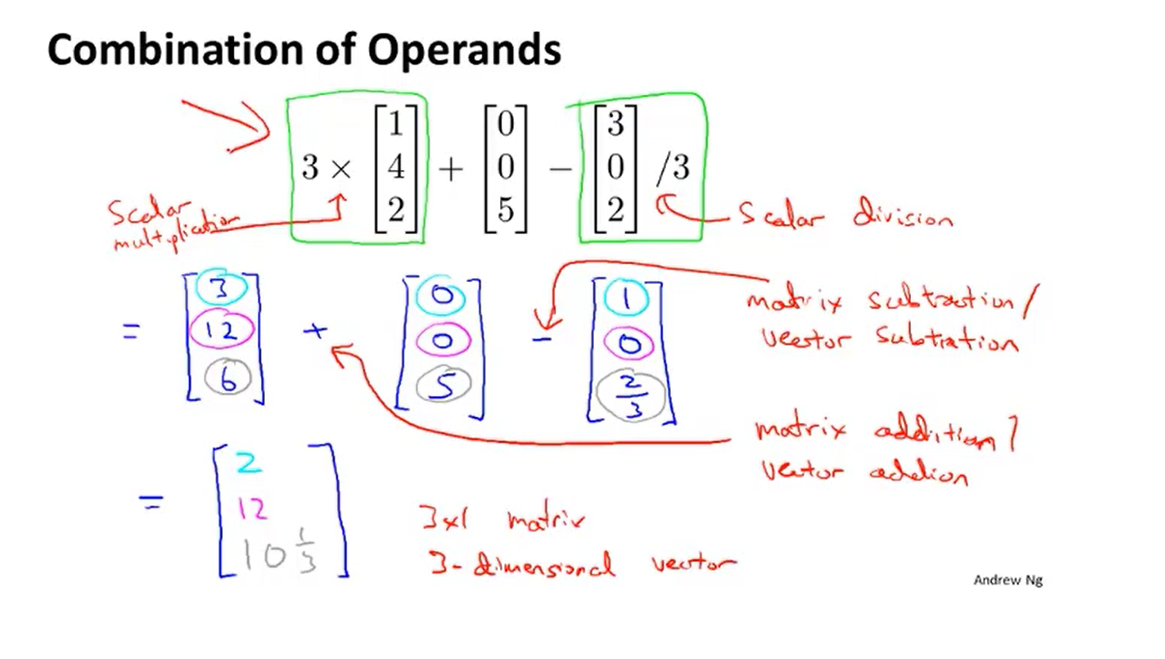 Combination of Operands
3 × [1 4 2] + [0 0 5] − [3 0 2] /3
Scalar multiplication
Scalar division
= [3 12 6] + [0 0 5] - [1 0 2/3]
matrix subtraction /
vector subtration
matrix addition /
vector addion
= [2 12 10 1/3]
3x1 matrix
3-dimensional vector
Andrew Ng